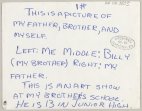 THIS IS A PICTURE OF
MY FATHER, BROTHER, AND
MYSELF.
LEFT: ME MIDDLE: BILLY
(MY BROTHER) RIGHT: MY
FATHER.
THIS IS AN ART SHOW
AT MY BROTHERS SCHOOL.
HE IS 13 IN JUNIOR HIGH.